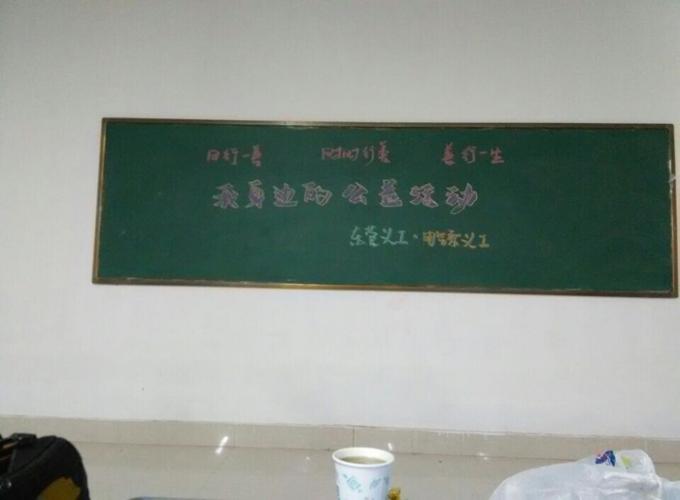 日行一善 时时行善 善行一生
我身边的公益活动
东营义工·电台义工